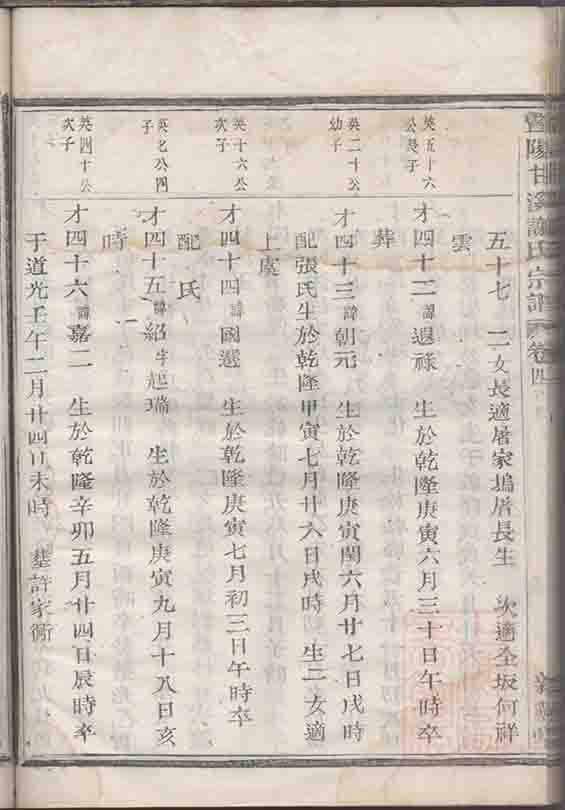 暨陽甘溪謝氏宗譜 卷四
五十七 二女長適屠家塢屠長生 次適全坂何祥
雲
英五十六
公長子
才四十二諱退祿 生於乾隆庚寅六月三十日午時卒
葬
英二十公
幼子
才四十三諱朝元 生於乾隆庚寅閏六月廿七日戌時
配張氏生於乾隆甲寅七月廿六日戌時 生二女適
上虞
英十六公
次子
才四十四諱國選 生於乾隆庚寅七月初三日午時卒
配 氏
英七公四
子
才四十五諱紹字起瑞 生於乾隆庚寅九月十八日亥
時
英四十公
次子
才四十六諱嘉二 生於乾隆辛卯五月廿四日辰時卒
于道光壬午二月廿四日未時 墓許家衕